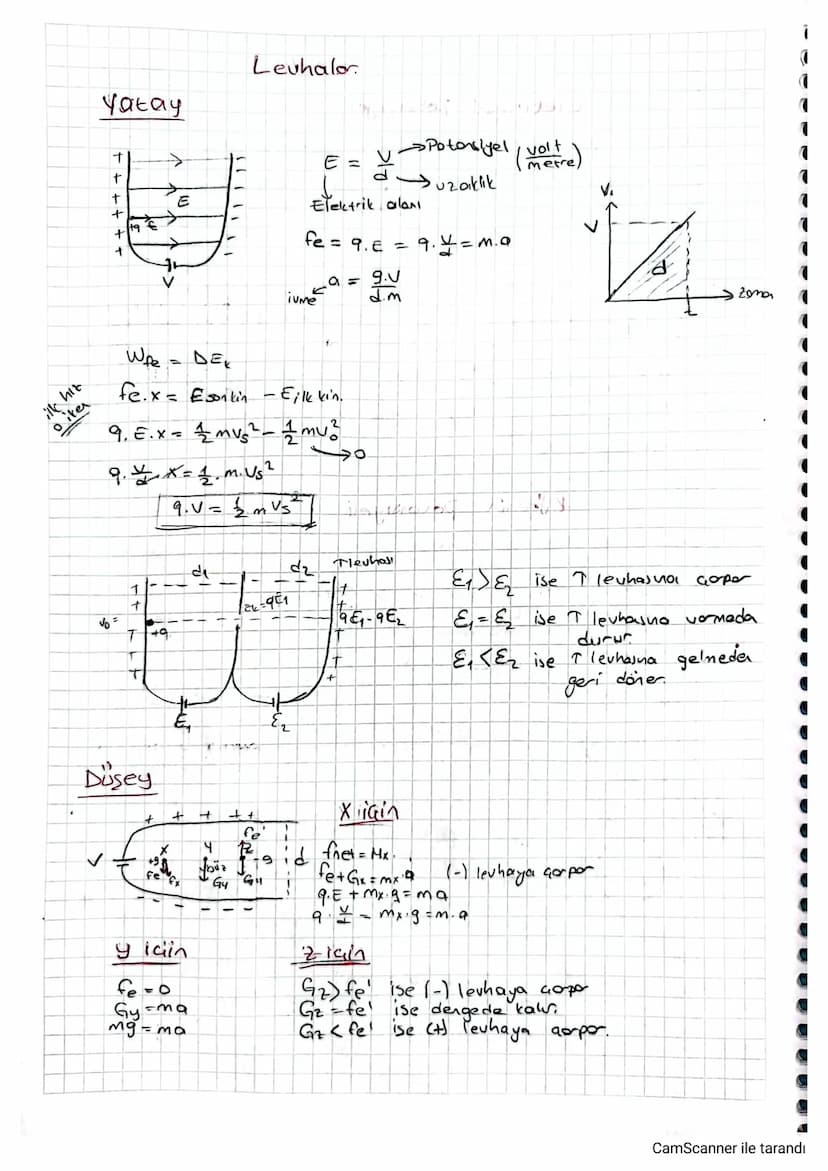 Levhalar
Yatay
E = V/d → Potansiyel (volt/metre)
→ uzaklık
Elektrik alanı
fe = q.E = q.V/d = m.a
ivme ← a = q.V/d.m
+ + + + + +
- - - - - -
E
+q
V
V
d
t
Wfe = DEk
ilk hız 0 iken
fe.x = Eson kin - Eilk kin.
q.E.x = 1/2 mVs² - 1/2 mV₀²
→ 0
q.V/d.x = 1/2.m.Vs²
q.V = 1/2 m Vs²
d1 d2 T levhası
V₀=
+q
qE1-qE2
E1 E2
E1 > E2 ise T levhasına çarpar
E1 = E2 ise T levhasına varmada
durur.
E1 < E2 ise T levhasına gelmeden
geri döner.
Düşey
+ + + + +
V
x y z d
+q -q
fe Gx Gy
fe'
- - - - -
X için
fnet = Mx.
fe+Gx=mx.a (-) levhaya çarpar
q.E + mx.g = ma
q.V/d - mx.g = m.a
y için
fe = 0
Gy = ma
mg = ma
z için
Gz > fe' ise (-) levhaya çarpar
Gz = fe' ise dengede kalır.
Gz < fe' ise (+) levhaya çarpar.
CamScanner ile tarandı